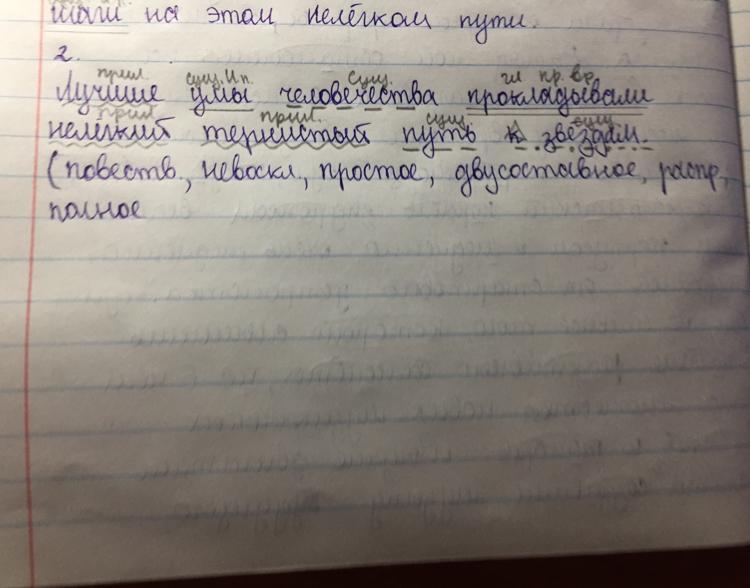 шаги на этом нелёгком пути.
2.
прил. сущ. И.п. сущ. гл пр. вр.
Лучшие умы человечества прокладывали
прил. прил. сущ. сущ
нелегкий тернистый путь к звёздам.
(повеств., невоскл., простое, двусоставное, распр.,
полное